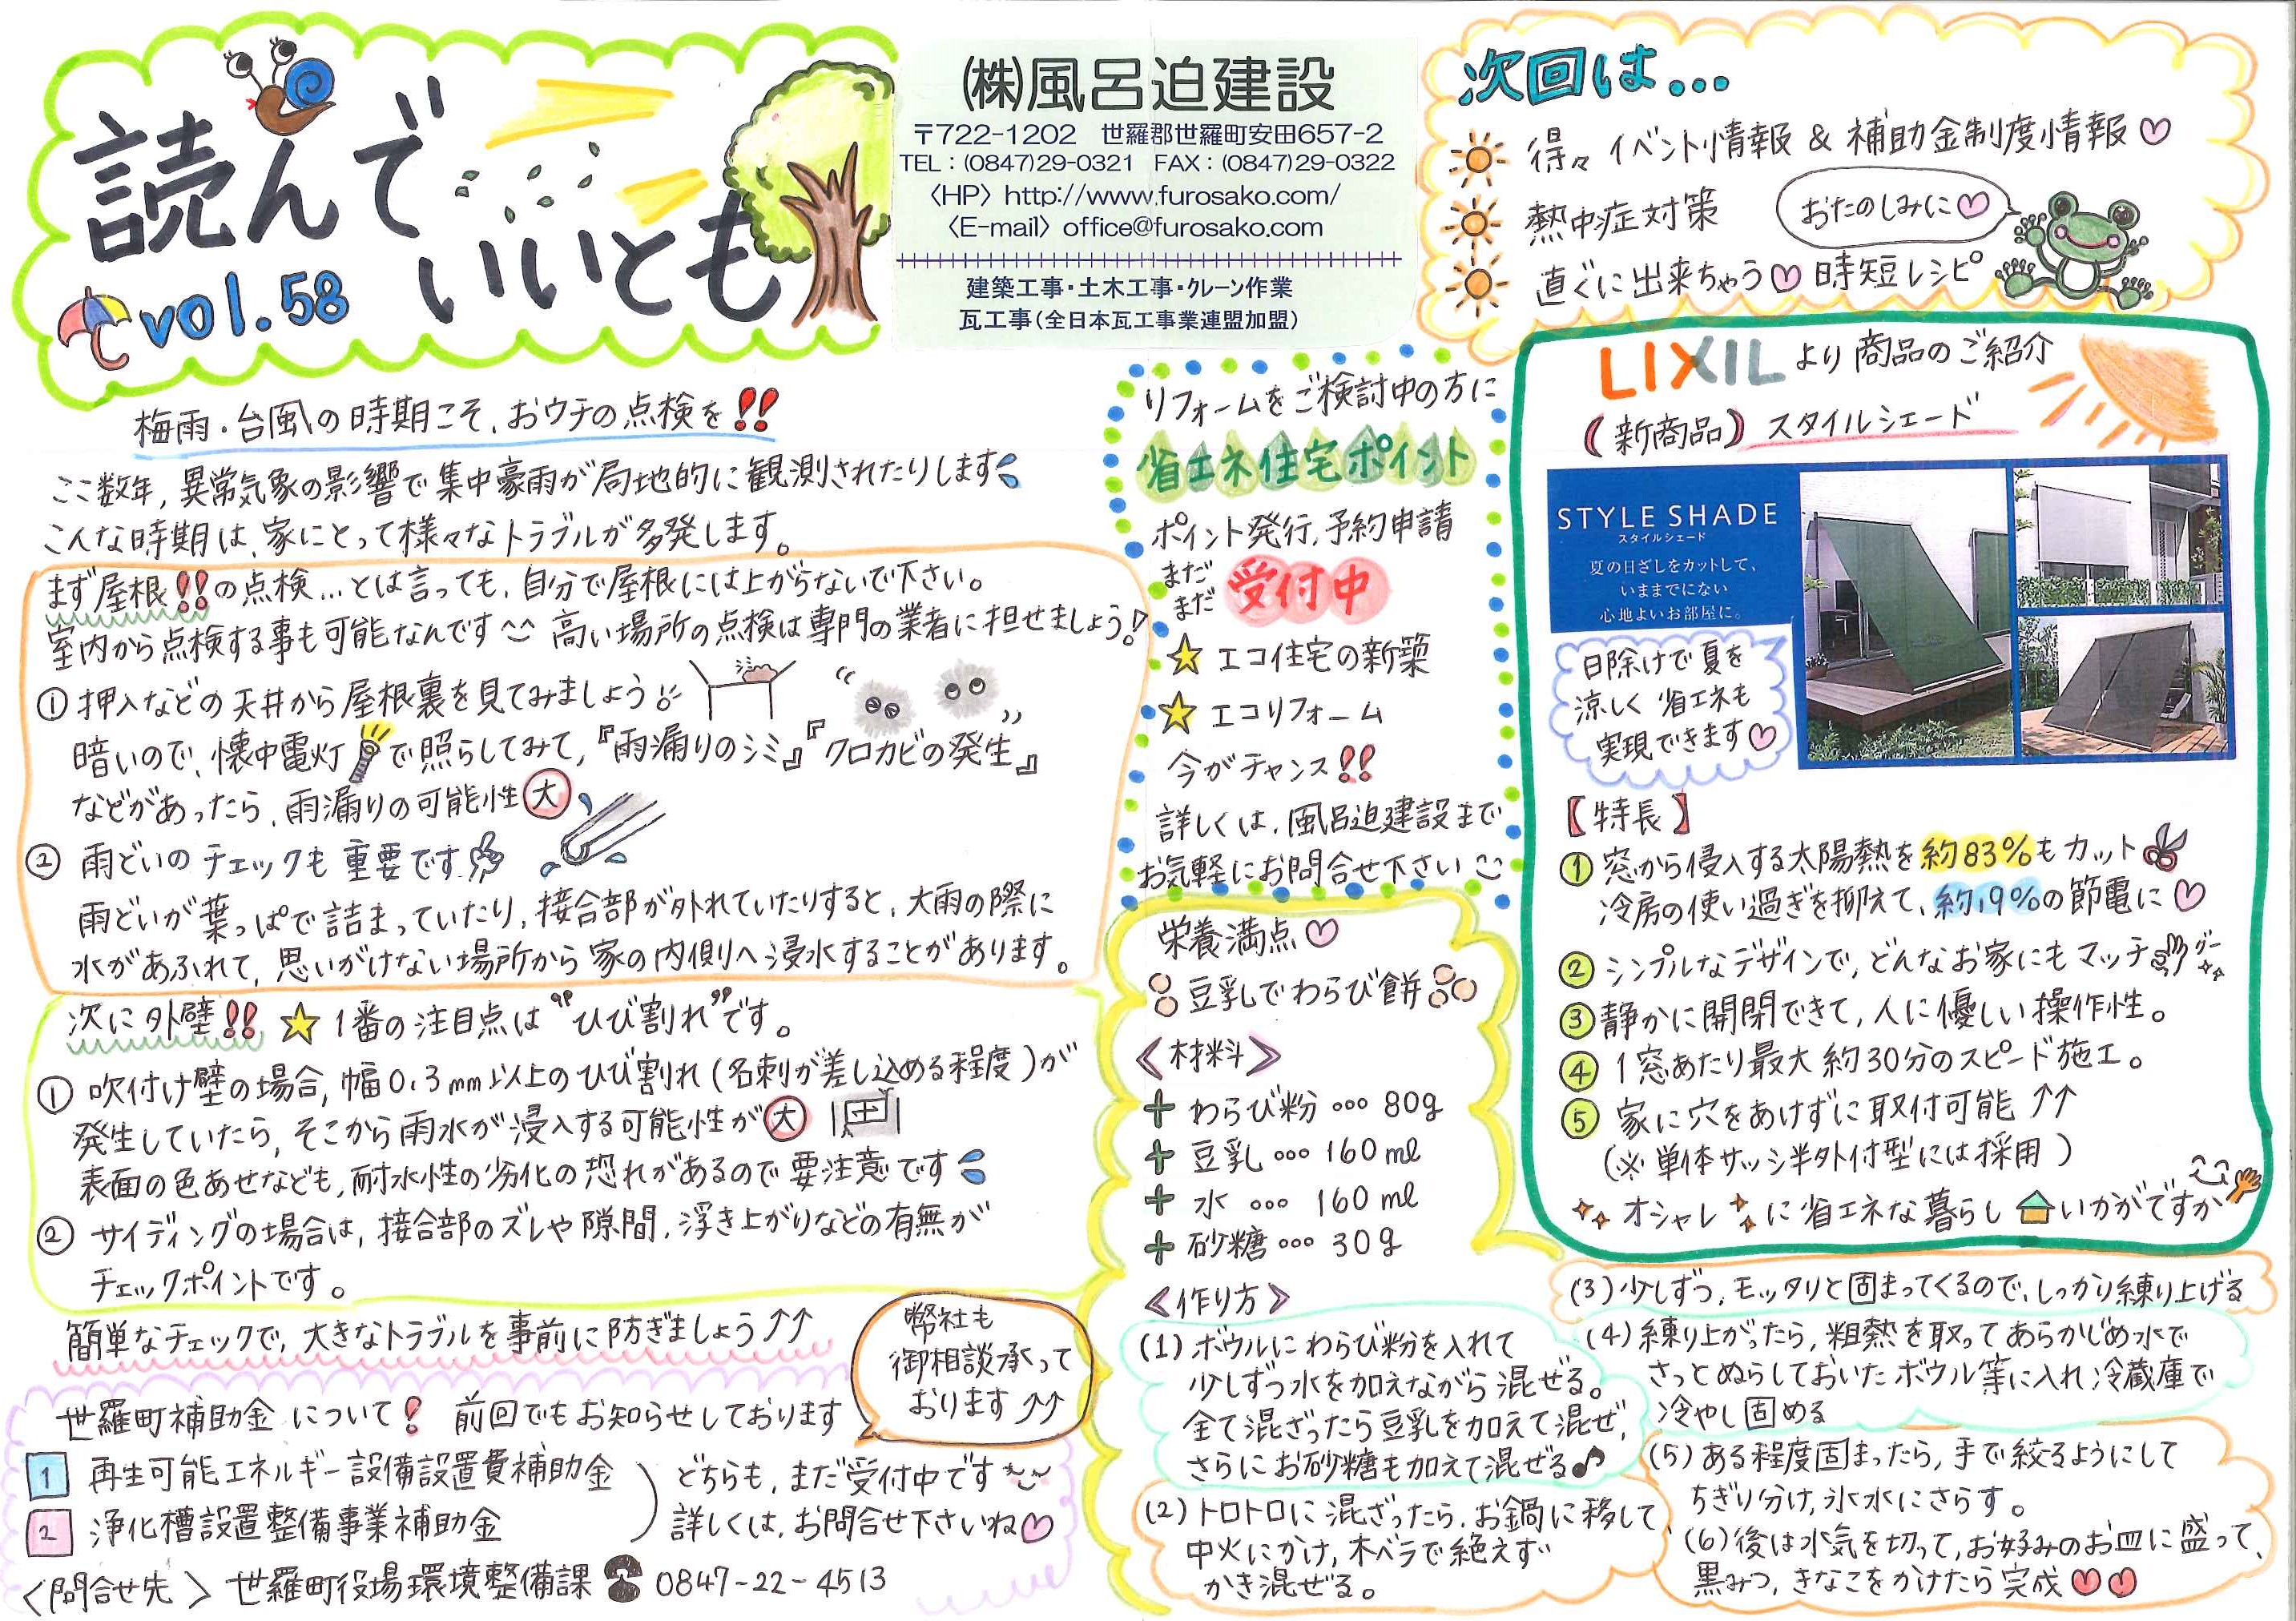 読んで
いいとも
vol.58
㈱風呂迫建設
〒722-1202 世羅郡世羅町安田657-2
TEL：(0847)29-0321 FAX：(0847)29-0322
〈HP〉http://www.furosako.com/
〈E-mail〉office@furosako.com
建築工事・土木工事・クレーン作業
瓦工事（全日本瓦工事業連盟加盟）
次回は…
得々イベント情報 & 補助金制度情報♡
熱中症対策
おたのしみに♡
直ぐに出来ちゃう♡時短レシピ
梅雨・台風の時期こそ、おウチの点検を!!
ここ数年，異常気象の影響で集中豪雨が局地的に観測されたりします
こんな時期は、家にとって様々なトラブルが多発します。
まず屋根!!の点検…とは言っても、自分で屋根には上がらないで下さい。
室内から点検する事も可能なんです 高い場所の点検は専門の業者に担せましょう!
① 押入などの天井から屋根裏を見てみましょう
暗いので、懐中電灯で照らしてみて，『雨漏りのシミ』『クロカビの発生』
などがあったら、雨漏りの可能性大
② 雨どいのチェックも重要です
雨どいが葉っぱで詰まっていたり，接合部が外れていたりすると、大雨の際に
水があふれて、思いがけない場所から家の内側へ浸水することがあります。
次に外壁!! ☆ 1番の注目点は“ひび割れ”です。
① 吹付け壁の場合，幅0.3mm以上のひび割れ(名刺が差し込める程度)が
発生していたら，そこから雨水が浸入する可能性が大
表面の色あせなども，耐水性の劣化の恐れがあるので要注意です
② サイディングの場合は，接合部のズレや隙間，浮き上がりなどの有無が
チェックポイントです。
簡単なチェックで，大きなトラブルを事前に防ぎましょう↑↑
弊社も
御相談承って
おります↑↑
世羅町補助金について! 前回でもお知らせしております
1 再生可能エネルギー設備設置費補助金
2 浄化槽設置整備事業補助金
どちらも，まだ受付中です
詳しくは，お問合せ下さいね♡
〈問合せ先〉世羅町役場環境整備課 ☎ 0847-22-4513
リフォームをご検討中の方に
省エネ住宅ポイント
ポイント発行，予約申請
まだ
まだ 受付中
☆ エコ住宅の新築
☆ エコリフォーム
今がチャンス!!
詳しくは、風呂迫建設まで
お気軽にお問合せ下さい
栄養満点♡
豆乳でわらび餅
《材料》
+ わらび粉…80g
+ 豆乳…160ml
+ 水…160ml
+ 砂糖…30g
《作り方》
(1) ボウルにわらび粉を入れて
少しずつ水を加えながら混ぜる。
全て混ざったら豆乳を加えて混ぜ，
さらにお砂糖も加えて混ぜる♪
(2) トロトロに混ざったら，お鍋に移して
中火にかけ，木ベラで絶えず
かき混ぜる。
(3) 少しずつ，モッタリと固まってくるので，しっかり練り上げる
(4) 練り上がったら，粗熱を取ってあらかじめ水で
さっとぬらしておいたボウル等に入れ冷蔵庫で
冷やし固める
(5) ある程度固まったら，手で絞るようにして
ちぎり分け，氷水にさらす。
(6) 後は水気を切って，お好みのお皿に盛って，
黒みつ，きなこをかけたら完成♡♡
LIXILより商品のご紹介
《新商品》スタイルシェード
STYLE SHADE
スタイルシェード
夏の日ざしをカットして、
いままでにない
心地よいお部屋に。
日除けで夏を
涼しく 省エネも
実現できます♡
【特長】
① 窓から侵入する太陽熱を約83%もカット
冷房の使い過ぎを抑えて、約19%の節電に♡
② シンプルなデザインで，どんなお家にもマッチ グー
③ 静かに開閉できて，人に優しい操作性。
④ 1窓あたり最大約30分のスピード施工。
⑤ 家に穴をあけずに取付可能↑↑
(※ 単体サッシ半外付型には採用)
オシャレに省エネな暮らしいかがですか